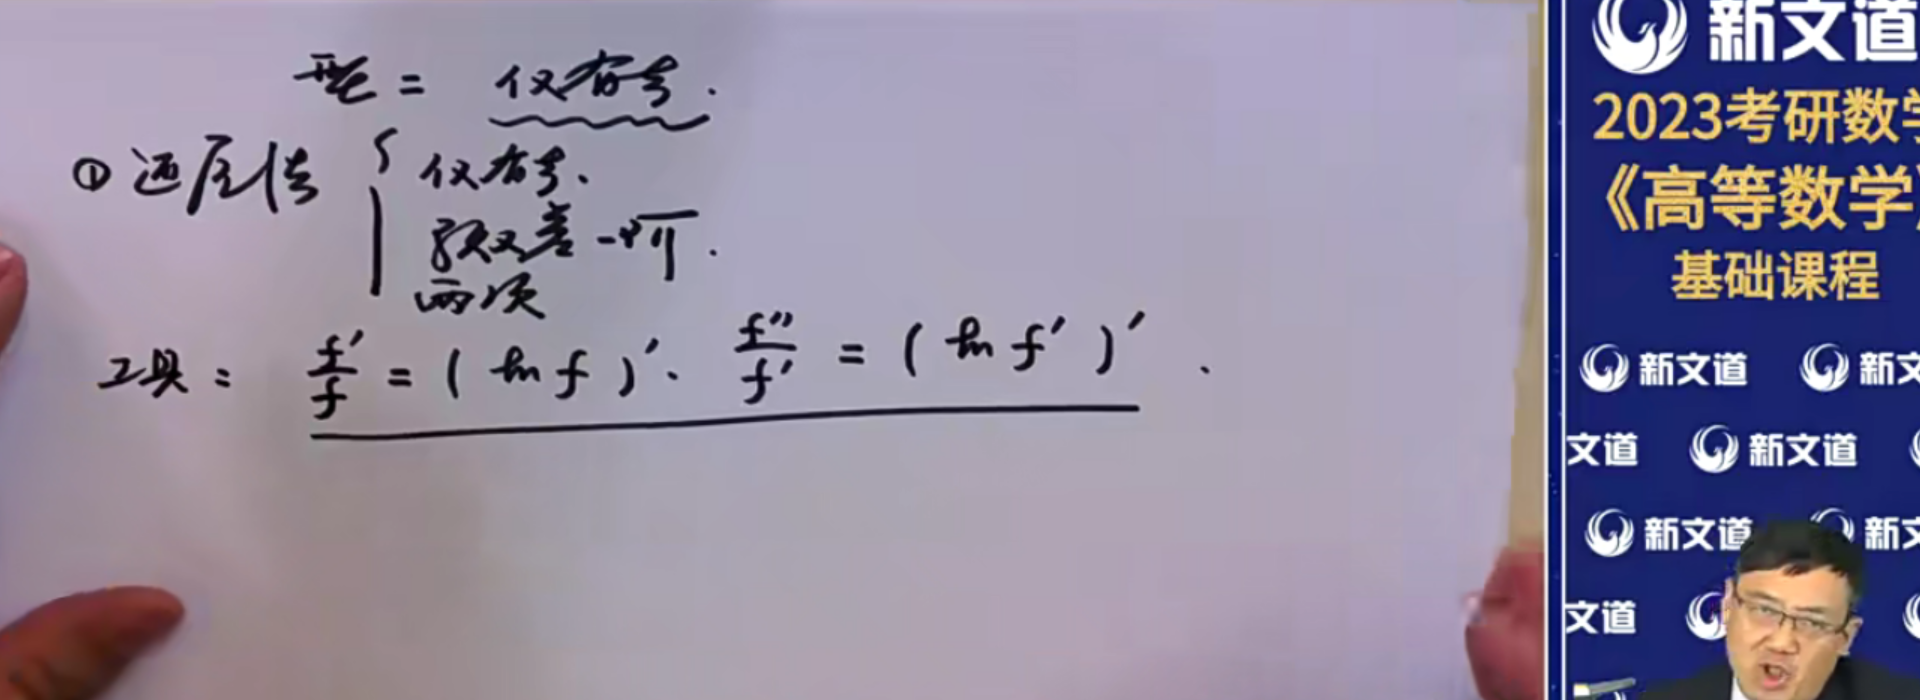 型二 仅有ξ.
① 还原法 { 仅有ξ.
导数差一阶.
两项
工具: f'/f = (ln f)'. f''/f' = (ln f')'.
新文道
2023考研数学
《高等数学》
基础课程
新文道 新文
文道 新文道
新文道 新文
文道